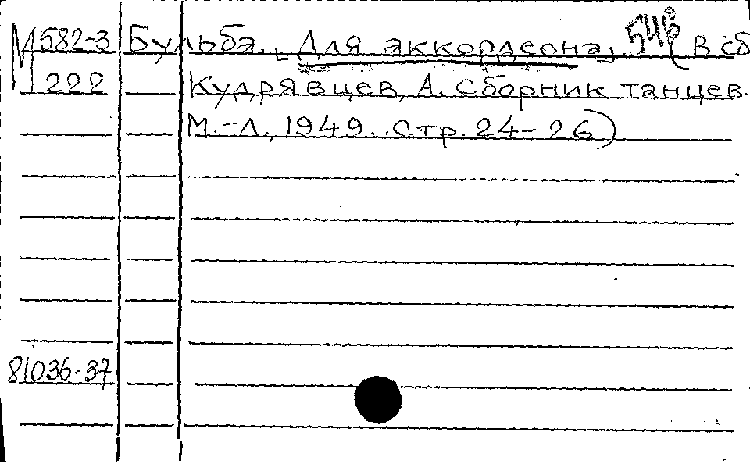 М 582-3 Бульба. [Для аккордеона] 54в (В сб
222 Кудрявцев, А. Сборник танцев.
М.-Л., 1949. Стр. 24-26)
81036-37